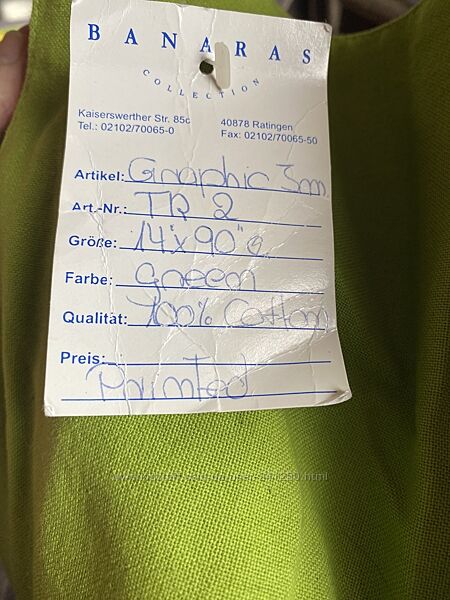 BANARAS
COLLECTION
Kaiserwerther Str. 85c 40878 Ratingen
Tel.: 02102/70065-0 Fax: 02102/70065-50
Artikel: Graphic
Art.-Nr.: TR 2
Größe: 14"x90"
Farbe: Green
Qualität: 100% Cotton
Preis:
Printed